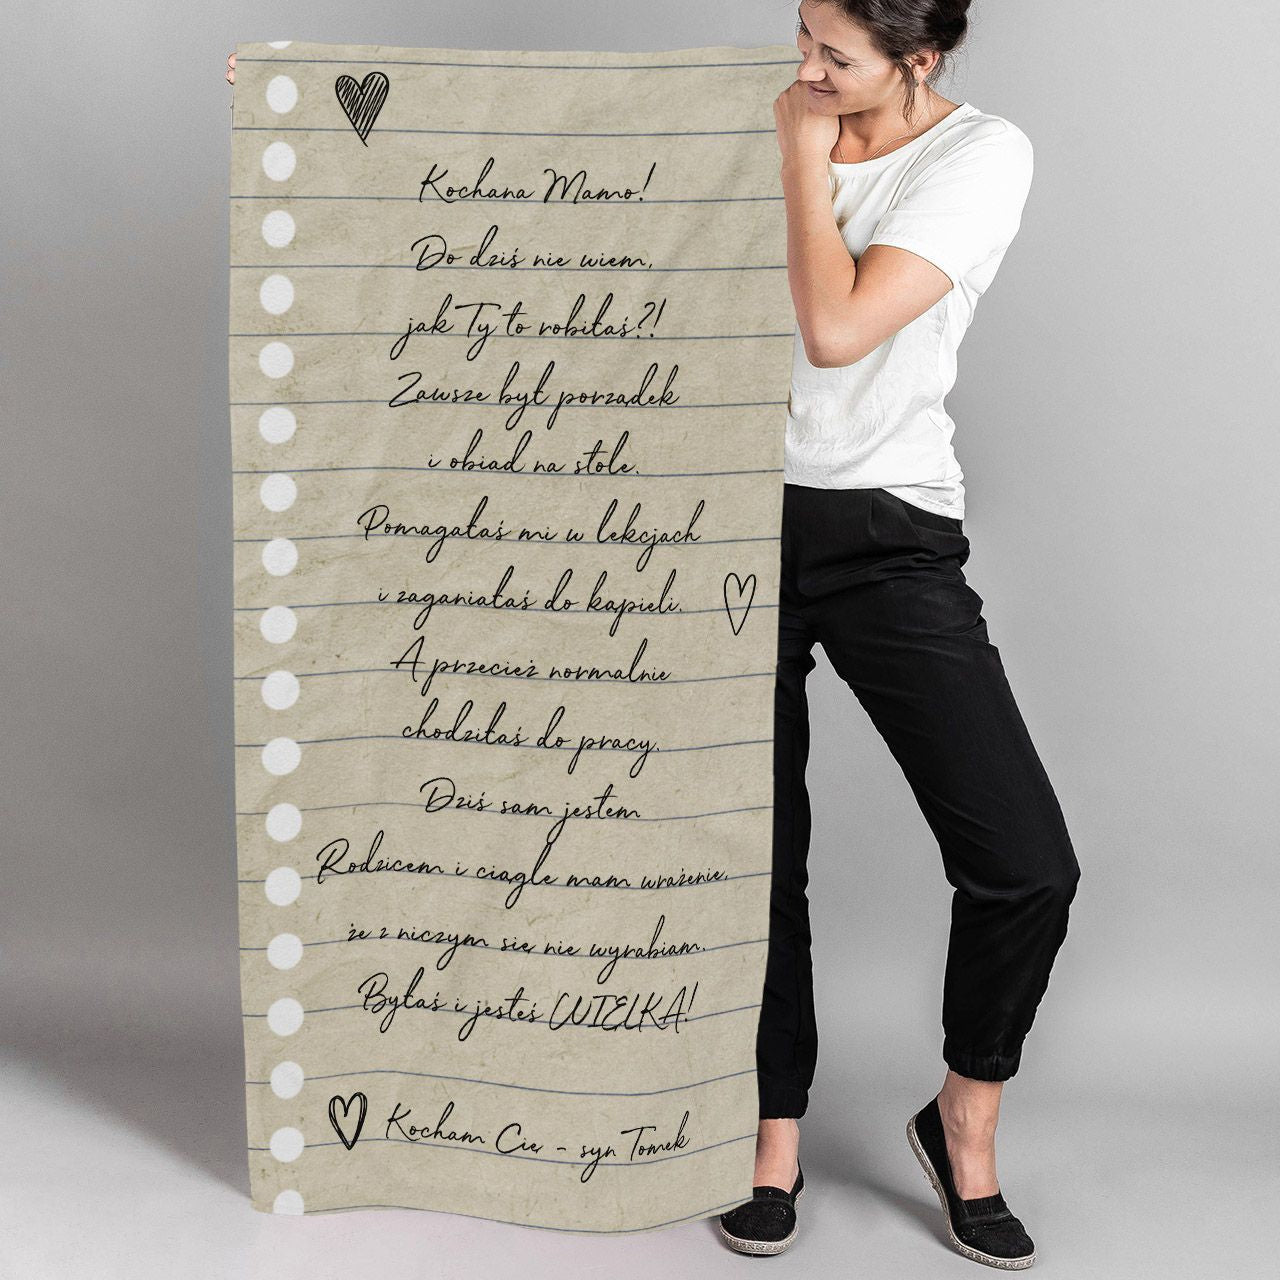 Kochana Mamo!
Do dziś nie wiem,
jak Ty to robiłaś?!
Zawsze był porządek
i obiad na stole.
Pomagałaś mi w lekcjach
i zaganiałaś do kąpieli.
A przecież normalnie
chodziłaś do pracy.
Dziś sam jestem
Rodzicem i ciągle mam wrażenie,
że z niczym się nie wyrabiam.
Byłaś i jesteś WIELKA!
Kocham Cię - syn Tomek